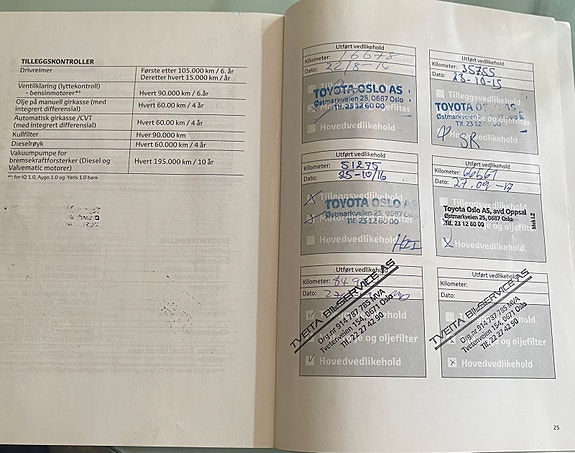 TILLEGGSKONTROLLER
Drivreimer
Første etter 105.000 km / 6. år
Deretter hvert 15.000 km / år
Ventilklaring (lyttekontroll)
- bensinmotorer*¹
Hvert 90.000 km / 6.år
Olje på manuell girkasse (med
integrert differensial)
Hvert 60.000 km / 4 år
Automatisk girkasse /CVT
(med integrert differensial)
Hvert 60.000 km / 4 år
Kullfilter
Hver 90.000 km
Dieselrøyk
Hvert 60.000 km / 4 år
Vakuumpumpe for
bremsekraftforsterker (Diesel og
Valvematic motorer)
Hvert 195.000 km / 10 år
*¹: for IQ 1.0, Aygo 1.0 og Yaris 1.0 bare
Utført vedlikehold
Kilometer: 16678
Dato: 22/8-14
TOYOTA OSLO AS
Østmarkveien 25, 0687 Oslo
Tlf. 23 12 60 00
Hovedvedlikehold
Utført vedlikehold
Kilometer: 35755
Dato: 23-10-15
Tilleggsvedlikehold
TOYOTA OSLO AS
Østmarkveien 25, 0687 Oslo
Tlf. 23 12 60 00
Hovedvedlikehold
SR
Utført vedlikehold
Kilometer: 51295
Dato: 25-10/16
Tilleggsvedlikehold
TOYOTA OSLO AS
Østmarkveien 25, 0687 O
Tlf. 23 12 60 00
Utført vedlikehold
Kilometer: 66661
Dato: 27.09-17
Tilleggsvedlikehold
Toyota Oslo AS, avd Oppsal
Østmarkveien 25, 0687 Oslo
Tlf. 23 12 60 00
Hovedvedlikehold
Utført vedlikehold
Kilometer:
Dato:
TVEITA BILSERVICE AS
Org.nr 914 787 785 MVA
Tvetenveien 154, 0671 Oslo
Tlf. 22 27 42 90
Hovedvedlikehold
Utført vedlikehold
Kilometer:
Dato:
TVEITA BILSERVICE AS
Org.nr 914 787 785 MVA
Tvetenveien 154, 0671 Oslo
Tlf. 22 27 42 90
og oljefilter
Hovedvedlikehold
25